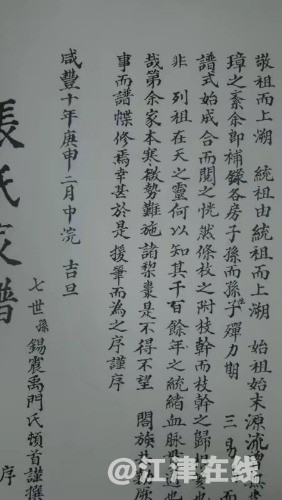 敬祖而上溯 統祖由統祖而上溯 始祖始末源流
璋之紊余即補錄各房子孫而孫子殫力期 三易
譜式始成合而閱之恍然條枝之附枝幹而枝幹之歸
非 列祖在天之靈何以知其千百餘年之統緒血脉
哉第余家本寒微勢難施諸棃棗是不得不望 閤族
事而譜牒修焉幸甚於是援筆而為之序謹序
咸豐十年庚申二月中浣 吉旦
七世孫錫震禹門氏頓首謹撰
張氏家譜 序
@江津在线